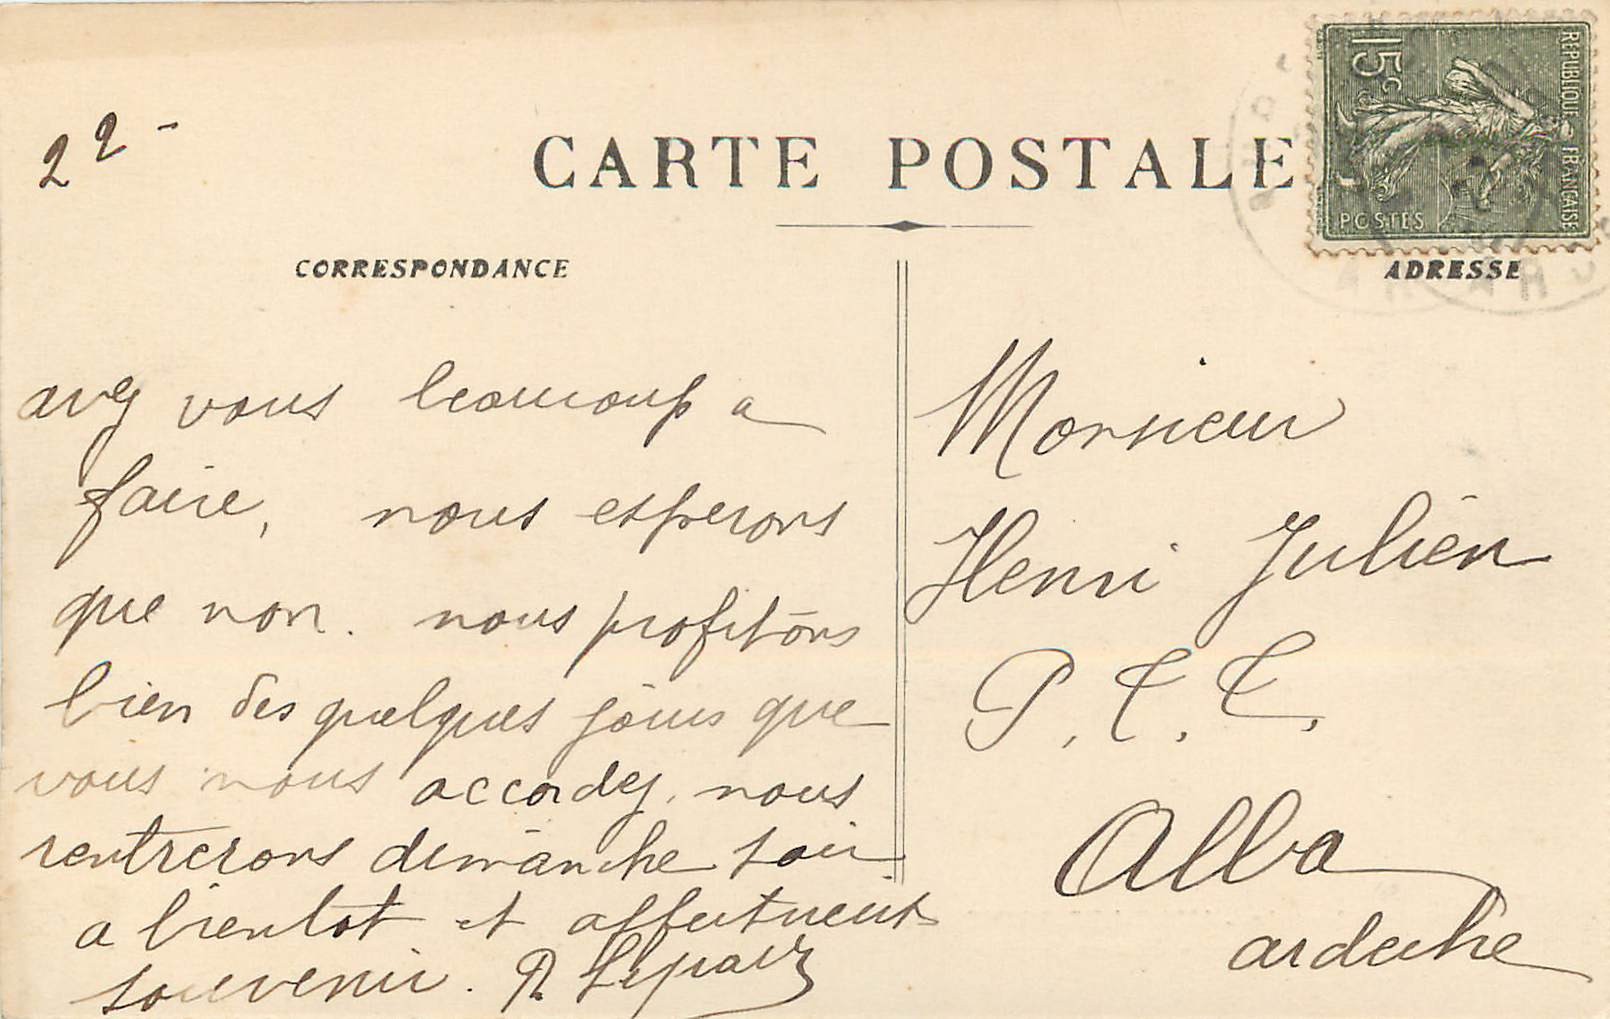 22-
CARTE POSTALE
CORRESPONDANCE
avez vous beaucoup a
faire, nous esperons
que non. nous profitons
bien des quelques jours que
vous nous accordez. nous
rentrerons dimanche soir
a bientot et affectueux
souvenir. R
REPUBLIQUE FRANÇAISE
15c
POSTES
ADRESSE
Monsieur
Henri Julien
P. T. T.
Alba
ardeche